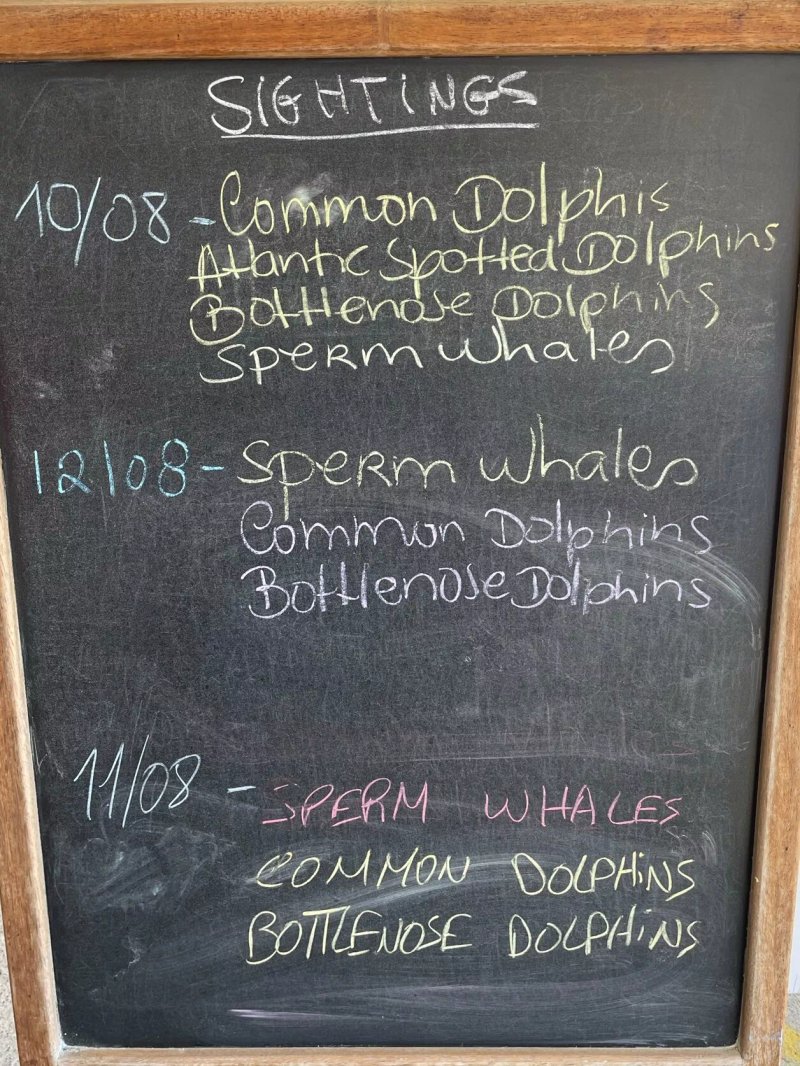 SIGHTINGS
10/08 - Common Dolphis
Atlantic Spotted Dolphins
Bottlenose Dolphins
Sperm Whales
12/08 - Sperm Whales
Common Dolphins
Bottlenose Dolphins
11/08 - SPERM WHALES
COMMON DOLPHiNS
BOTTLENOSE DOLPHiNS